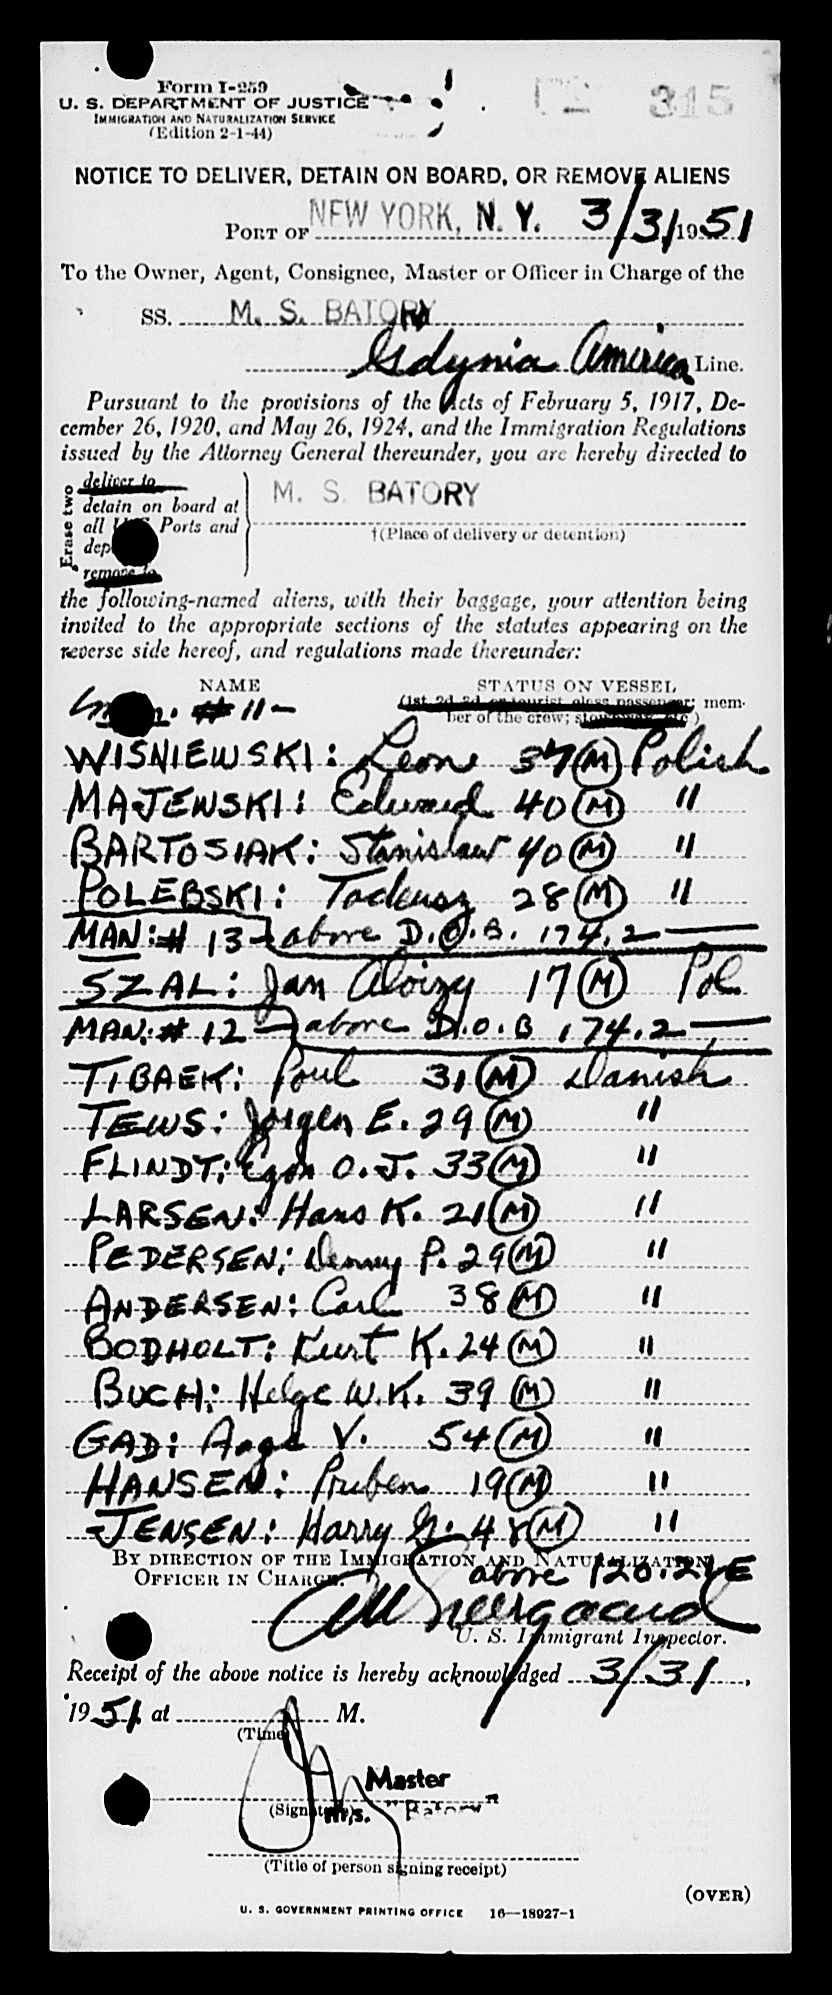 Form I-259
U. S. DEPARTMENT OF JUSTICE
IMMIGRATION AND NATURALIZATION SERVICE
(Edition 2-1-44)
315
NOTICE TO DELIVER, DETAIN ON BOARD, OR REMOVE ALIENS
PORT OF NEW YORK, N. Y. 3/31, 1951
To the Owner, Agent, Consignee, Master or Officer in Charge of the
SS. M. S. BATORY
Gdynia America Line.
Pursuant to the provisions of the Acts of February 5, 1917, De-
cember 26, 1920, and May 26, 1924, and the Immigration Regulations
issued by the Attorney General thereunder, you are hereby directed to
Erase two
deliver to
detain on board at
all U. S. Ports and
dep
remove to
M. S. BATORY
†(Place of delivery or detention)
the following-named aliens, with their baggage, your attention being
invited to the appropriate sections of the statutes appearing on the
reverse side hereof, and regulations made thereunder:
NAME STATUS ON VESSEL
(1st, 2d, 3d, or tourist class passenger; mem-
ber of the crew; stowaway, etc.)
# 11 —
WISNIEWSKI: Leon 37 (M) Polish
MAJEWSKI: Edward 40 (M) "
BARTOSIAK: Stanislaw 40 (M) "
POLEBSKI: Tadeusz 28 (M) "
MAN: # 13 above D.O.B. 174.2
SZAL: Jan Aloizy 17 (M) Pol.
MAN: # 12 — above D.O.B 174.2
TIBAEK: Poul 31 (M) Danish
TEWS: Jorgen E. 29 (M) "
FLINDT: Egon O. J. 33 (M) "
LARSEN: Hans K. 21 (M) "
PEDERSEN: Denny P. 29 (M) "
ANDERSEN: Carl 38 (M) "
BODHOLT: Kurt K. 24 (M) "
BUCH: Helge W. K. 39 (M) "
GAD: Aage V. 54 (M) "
HANSEN: Pruben 19 (M) "
JENSEN: Harry G. 48 (M) "
BY DIRECTION OF THE IMMIGRATION AND NATURALIZATION
OFFICER IN CHARGE. above 120.21E
U. S. Immigrant Inspector.
Receipt of the above notice is hereby acknowledged 3/31,
1951, at M.
(Time)
Master
(Signature) M.S. "Batory"
(Title of person signing receipt)
(OVER)
U. S. GOVERNMENT PRINTING OFFICE 16—18927-1